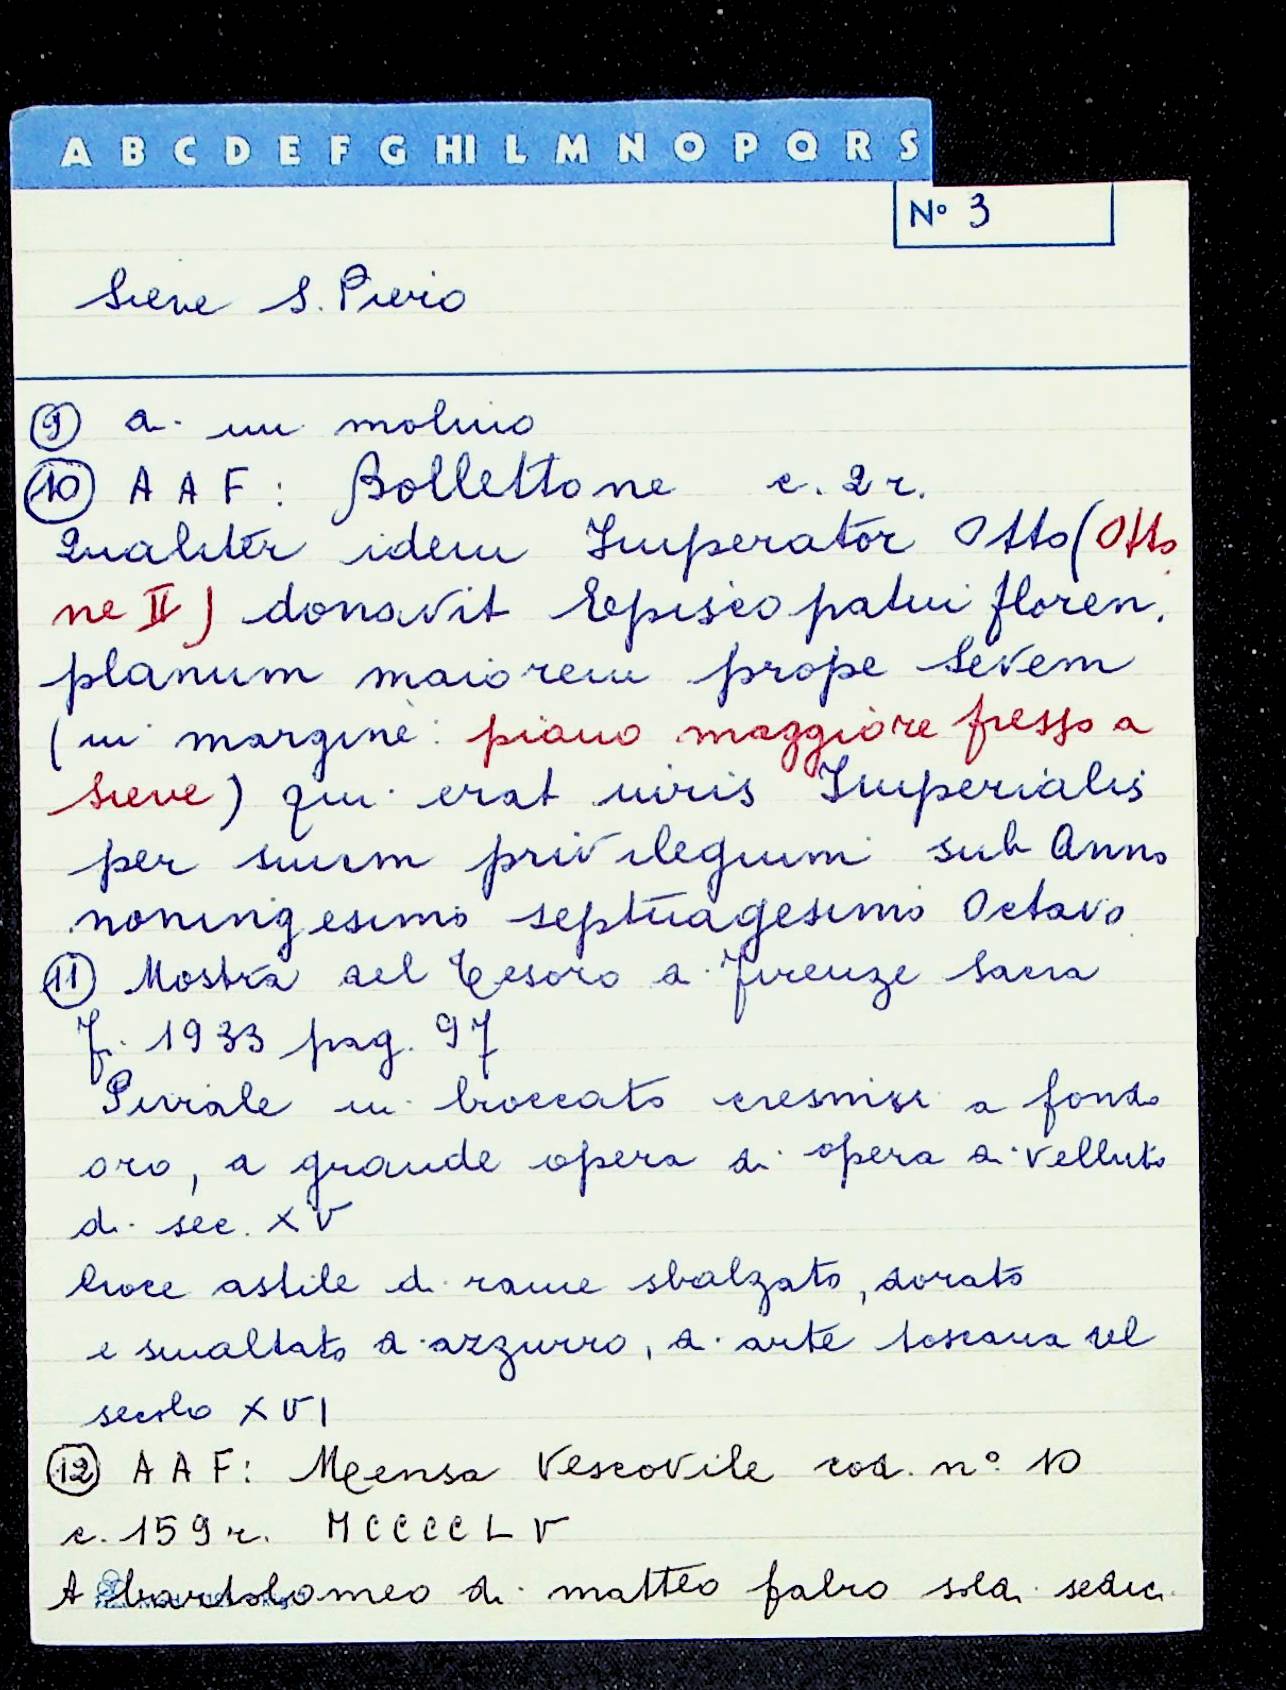 A B C D E F G HI L M N O P Q R S
N° 3
Sieve S. Piero
9 a. un molino
10 A A F : Bollettone c. 2 r.
Qualiter idem Imperator Otto (Otto
ne II) donavit Episcopatui floren.
planum maiorem prope Sevem
(in margine: piano maggiore presso a
Sieve) qui erat iuris Imperialis
per suum privilegium sub Anno
noningesimo septuagesimo Octavo
11 Mostra del Tesoro di Firenze Sacra
F. 1933 pag. 97
Piviale in broccato cremisi a fondo
oro, a grande opera di opera di velluto
di sec. XV
Croce astile di rame sbalzato, dorato
e smaltato di azzurro, di arte toscana del
secolo XVI
12 A A F : Mensa Vescovile cod. n° 10
c. 159 r. MCCCCLV
A bartolomeo di matteo fabro soldi sedici